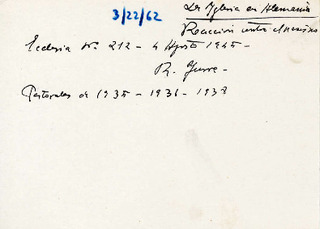 3/22/62
La Iglesia en Alemania
Reacción contra
Ecclesia Nº 212 - 4 Agosto 1945 -
Pastorales de 1935 - 1936 - 1938